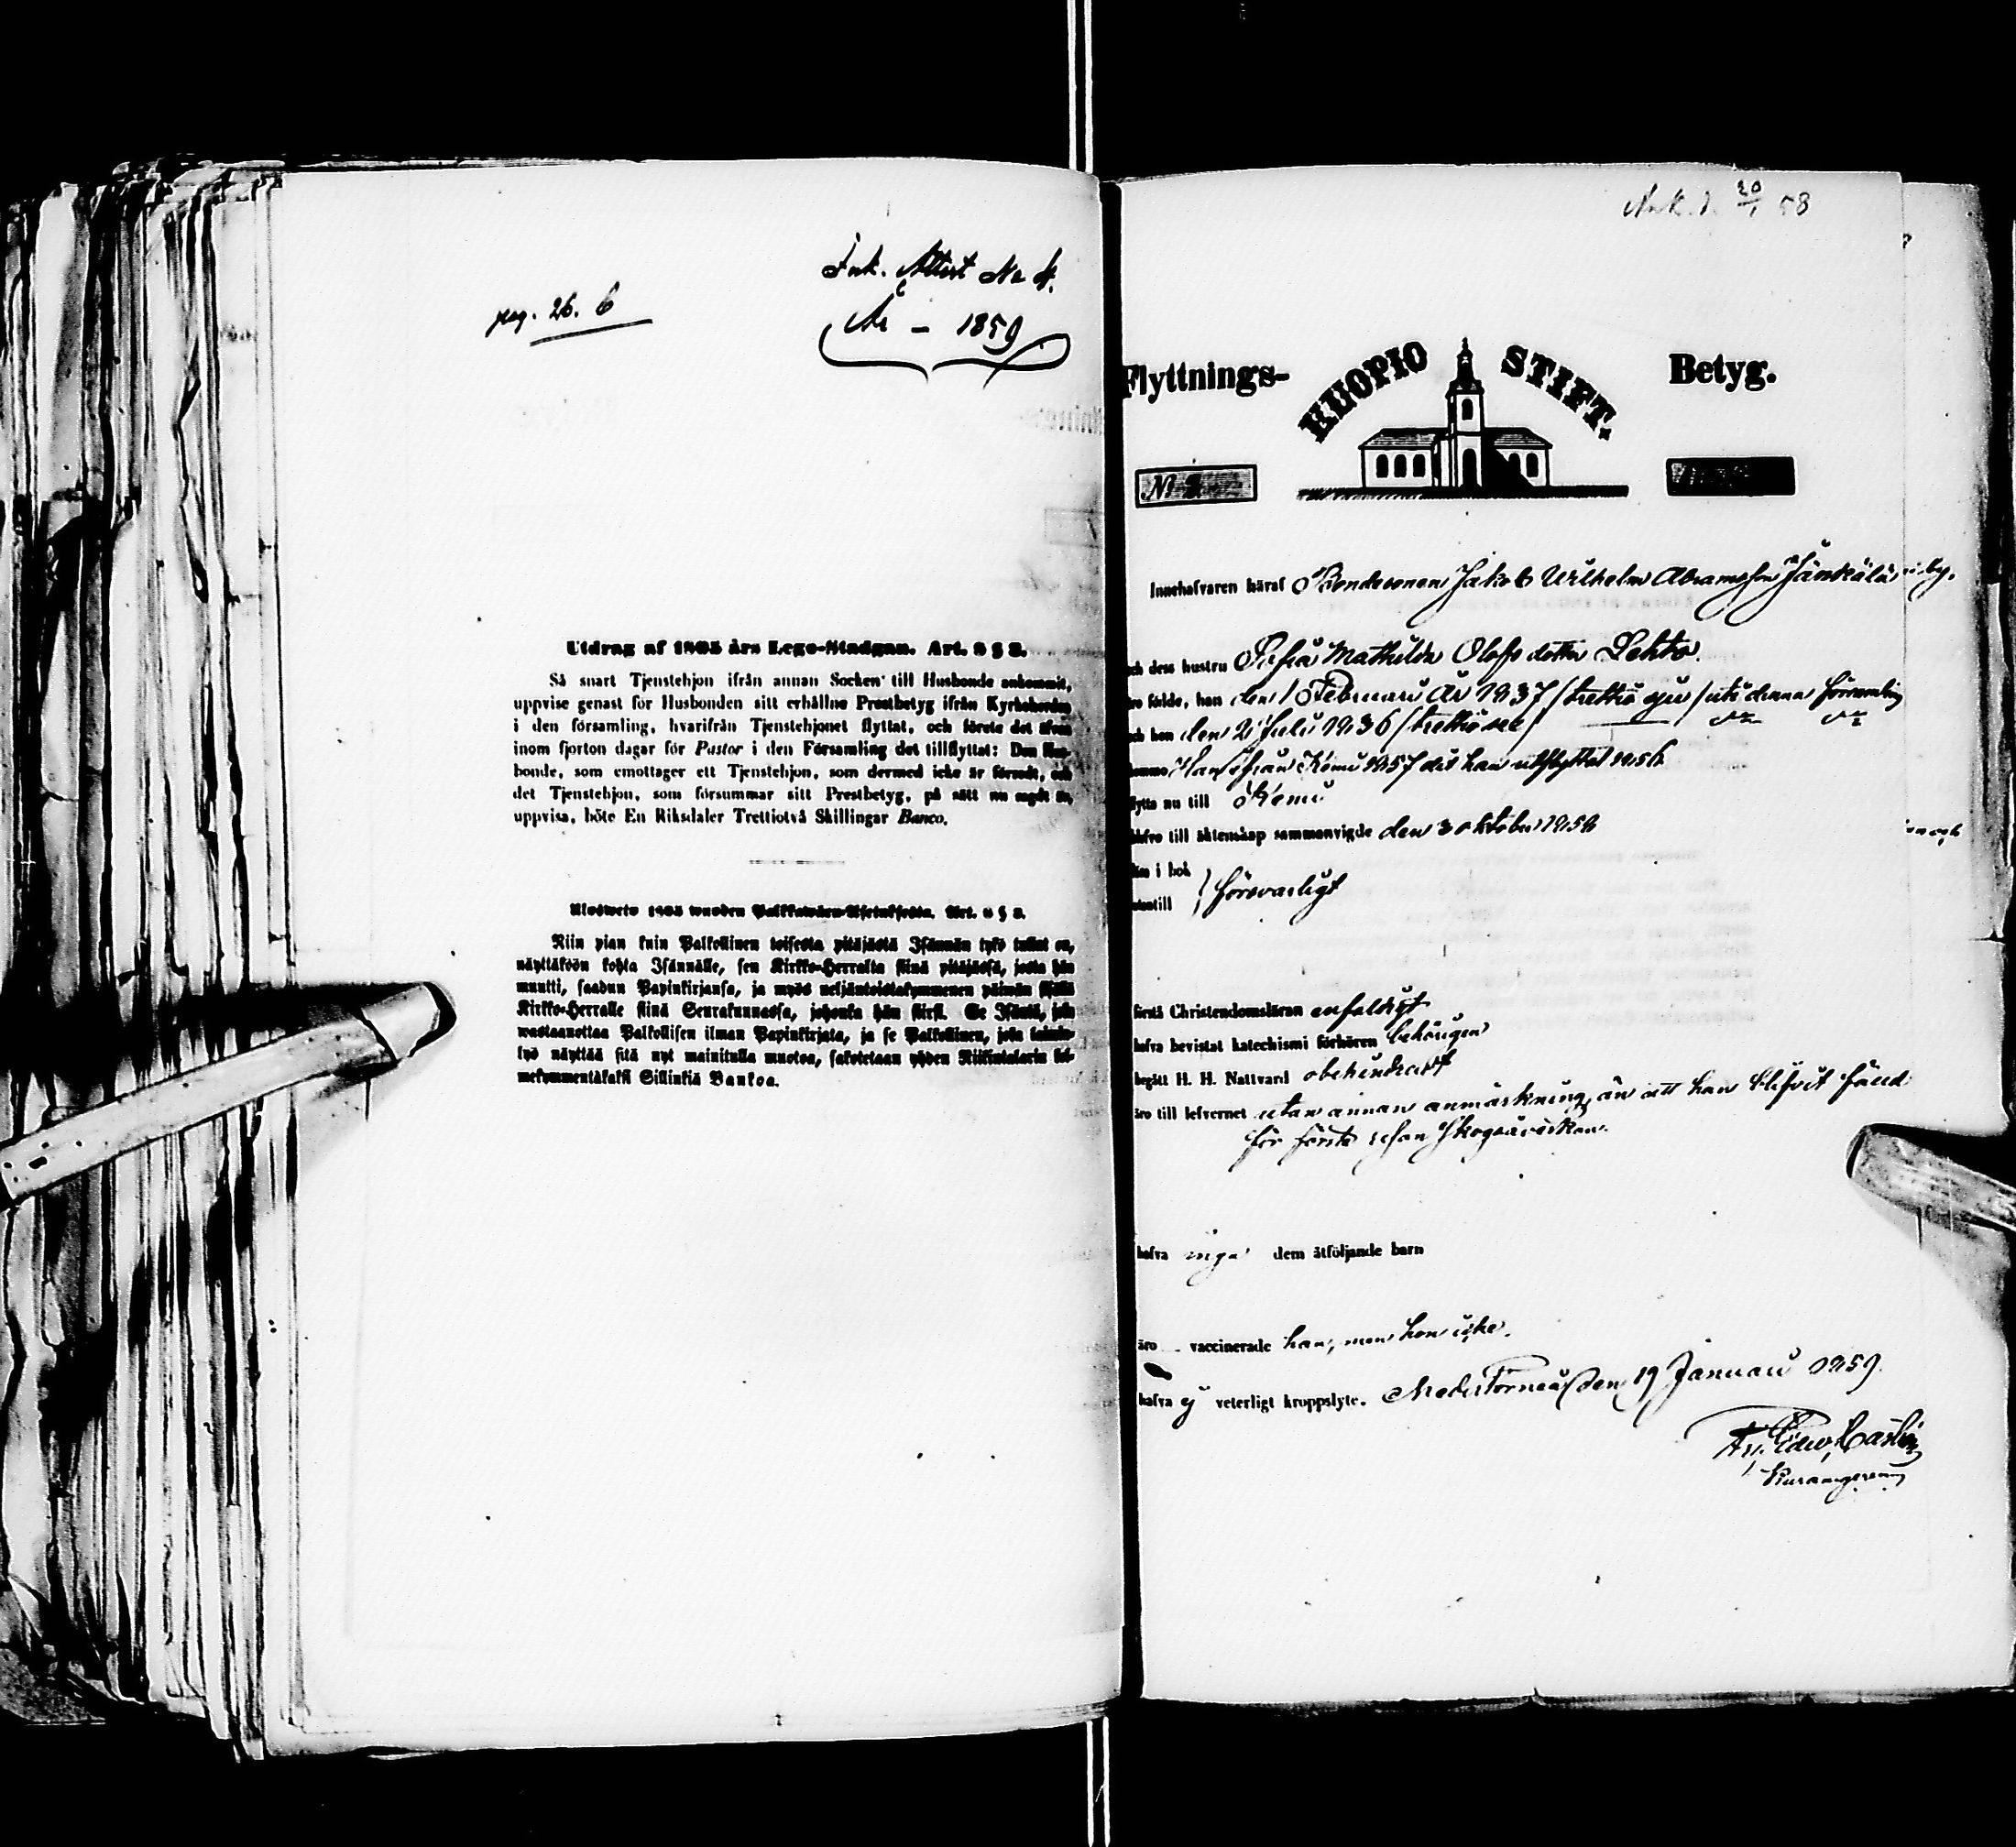 pag. 26. 6
Ink. Attest No 4.
År - 1859
Utdrag af 1805 års Lego-Stadgan. Art. 8 § 3.
Så snart Tjenstehjon ifrån annan Socken till Husbonde ankommit,
uppvise genast för Husbonden sitt erhållne Prestbetyg ifrån Kyrkoherden
i den församling, hvarifrån Tjenstehjonet flyttat, och förete det äfven
inom fjorton dagar för Pastor i den Församling det tillflyttat: Den Hus-
bonde, som emottager ett Tjenstehjon, som dermed icke är försedt, och
det Tjenstehjon, som försummar sitt Prestbetyg, på sätt nu sagdt är,
uppvisa, böte En Riksdaler Trettiotvå Skillingar Banco.
Ulosweto 1805 wuoden Palkkawäen-Asetuksesta. Art. 8 § 3.
Niin pian kuin Palkollinen toisesta pitäjästä Isännän tykö tullut on,
näyttäköön kohta Isännälle, sen Kirkko-Herralta siinä pitäjässä, josta hän
muutti, saadun Papinkirjansa, ja myös neljäntoistakymmenen päiwän sisällä
Kirkko-Herralle siinä Seurakunnassa, johonka hän siirsi. Se Isäntä, joka
wastaanottaa Palkollisen ilman Papinkirjata, ja se Palkollinen, joka laimin-
lyö näyttää sitä nyt mainitulla muotoa, sakotetaan yhden Riikintalarin kol-
mekymmentäkaksi Sillinkiä Bankoa.
Ank. d. 20/1 58
Flyttnings- KUOPIO STIFT. Betyg.
Innehafvaren häraf Bondesonen Jakob Wilhelm Abramsson Jänkälä by.
och dess hustru Sofia Mathilda Olofsdotter Lehto.
äro födde, han den 1 Februari År 1837 / trettio sju / uti denna församling
och hon den 2 Julii 1836 / trettio sex /
Han ifrån Kemi 1857 dit han utflyttat 1856
flytta nu till Kemi
till äktenskap sammanvigde den 3 oktober 1858
i bok
utantill } försvarligt
förstå Christendomsläran enfaldigt
hafva bevistat katechismi förhören behörigen
begått H. H. Nattvard obehindradt
äro till lefvernet utan annan anmärkning, än att han blifvit fäld
för första resan skogsåverkan.
hafva inga dem åtföljande barn
äro vaccinerade han, men hon icke.
hafva ej veterligt kroppslyte. Neder Torneå den 19 Januari 1859.